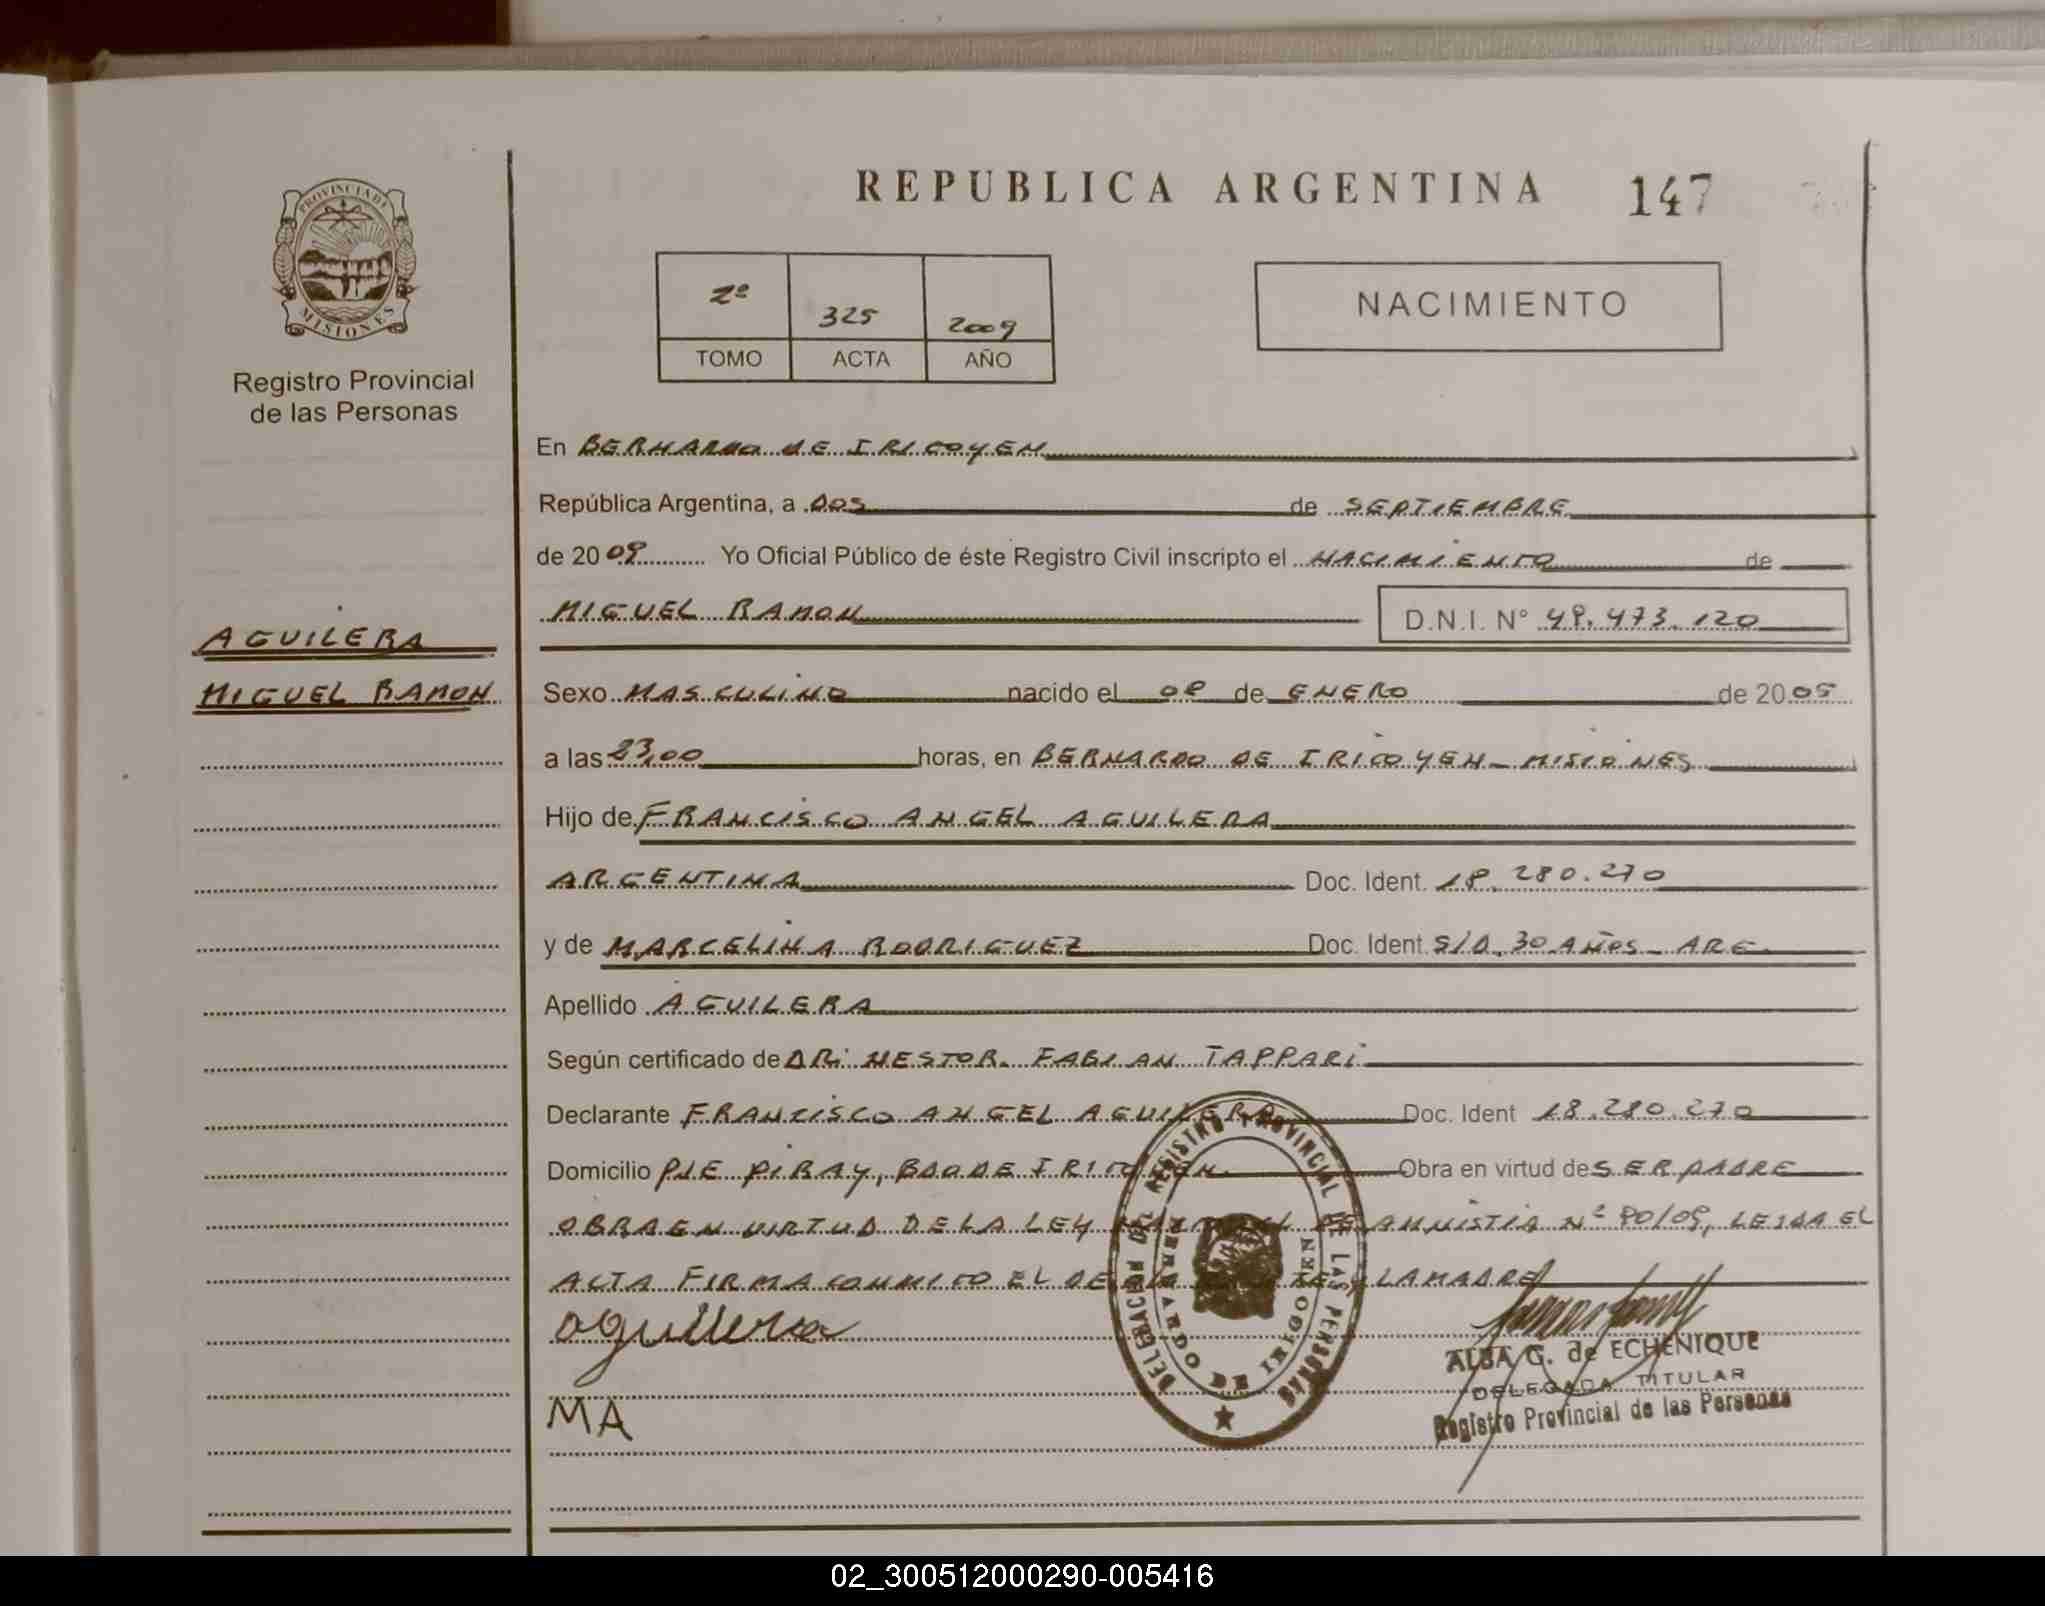 REPUBLICA ARGENTINA 147
PROVINCIA DE
MISIONES
Registro Provincial
de las Personas
2º 325 2009
TOMO ACTA AÑO
NACIMIENTO
En BERNARDO DE IRIGOYEN
República Argentina, a DOS de SEPTIEMBRE
de 20 09 Yo Oficial Público de éste Registro Civil inscripto el NACIMIENTO de
MIGUEL RAMON D.N.I. Nº 49.473.120
AGUILERA
MIGUEL RAMON
Sexo MASCULINO nacido el 09 de ENERO de 20 05
a las 23,00 horas, en BERNARDO DE IRIGOYEN - MISIONES
Hijo de FRANCISCO ANGEL AGUILERA
ARGENTINA Doc. Ident. 18.280.270
y de MARCELINA RODRIGUEZ Doc. Ident. S/D. 30 AÑOS - ARG.
Apellido AGUILERA
Según certificado de DR: NESTOR FABIAN TAPPARI
Declarante FRANCISCO ANGEL AGUILERA Doc. Ident 18.280.270
Domicilio PJE PIRAY, BDO DE IRIGOYEN. Obra en virtud de SER PADRE
OBRA EN VIRTUD DE LA LEY DE AMNISTIA Nº 90/09, LEIDA EL
ACTA FIRMA CONMIGO EL Y LA MADRE
Aguilera
MA
DELEGACION DEL REGISTRO PROVINCIAL DE LAS PERSONAS
BERNARDO DE IRIGOYEN
ALBA G. de ECHENIQUE
DELEGADA TITULAR
Registro Provincial de las Personas
02_300512000290-005416